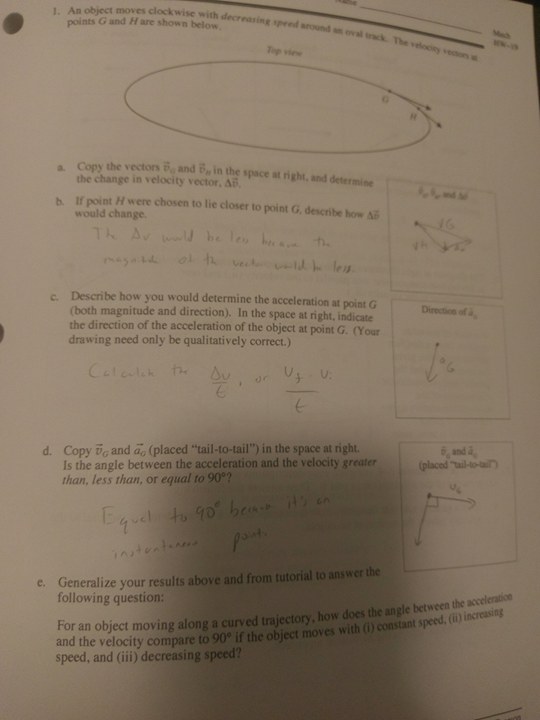 Name
Mech
HW-19
1. An object moves clockwise with decreasing speed around an oval track. The velocity vectors at
points G and H are shown below.
Top view
G
H
a. Copy the vectors v⃗G and v⃗H in the space at right, and determine
the change in velocity vector, Δv⃗.
v⃗G, v⃗H, and Δv⃗
b. If point H were chosen to lie closer to point G, describe how Δv⃗
would change.
vG
vH
Δv
The Δv would be less because the
magnitude of the vector would be less.
c. Describe how you would determine the acceleration at point G
(both magnitude and direction). In the space at right, indicate
the direction of the acceleration of the object at point G. (Your
drawing need only be qualitatively correct.)
Direction of a⃗G
aG
Calculate the Δv/t, or vf - vi/t
d. Copy v⃗G and a⃗G (placed "tail-to-tail") in the space at right.
Is the angle between the acceleration and the velocity greater
than, less than, or equal to 90°?
v⃗G and a⃗G
(placed "tail-to-tail")
vG
Equal to 90° because it's an
instantaneous point.
e. Generalize your results above and from tutorial to answer the
following question:
For an object moving along a curved trajectory, how does the angle between the acceleration
and the velocity compare to 90° if the object moves with (i) constant speed, (ii) increasing
speed, and (iii) decreasing speed?